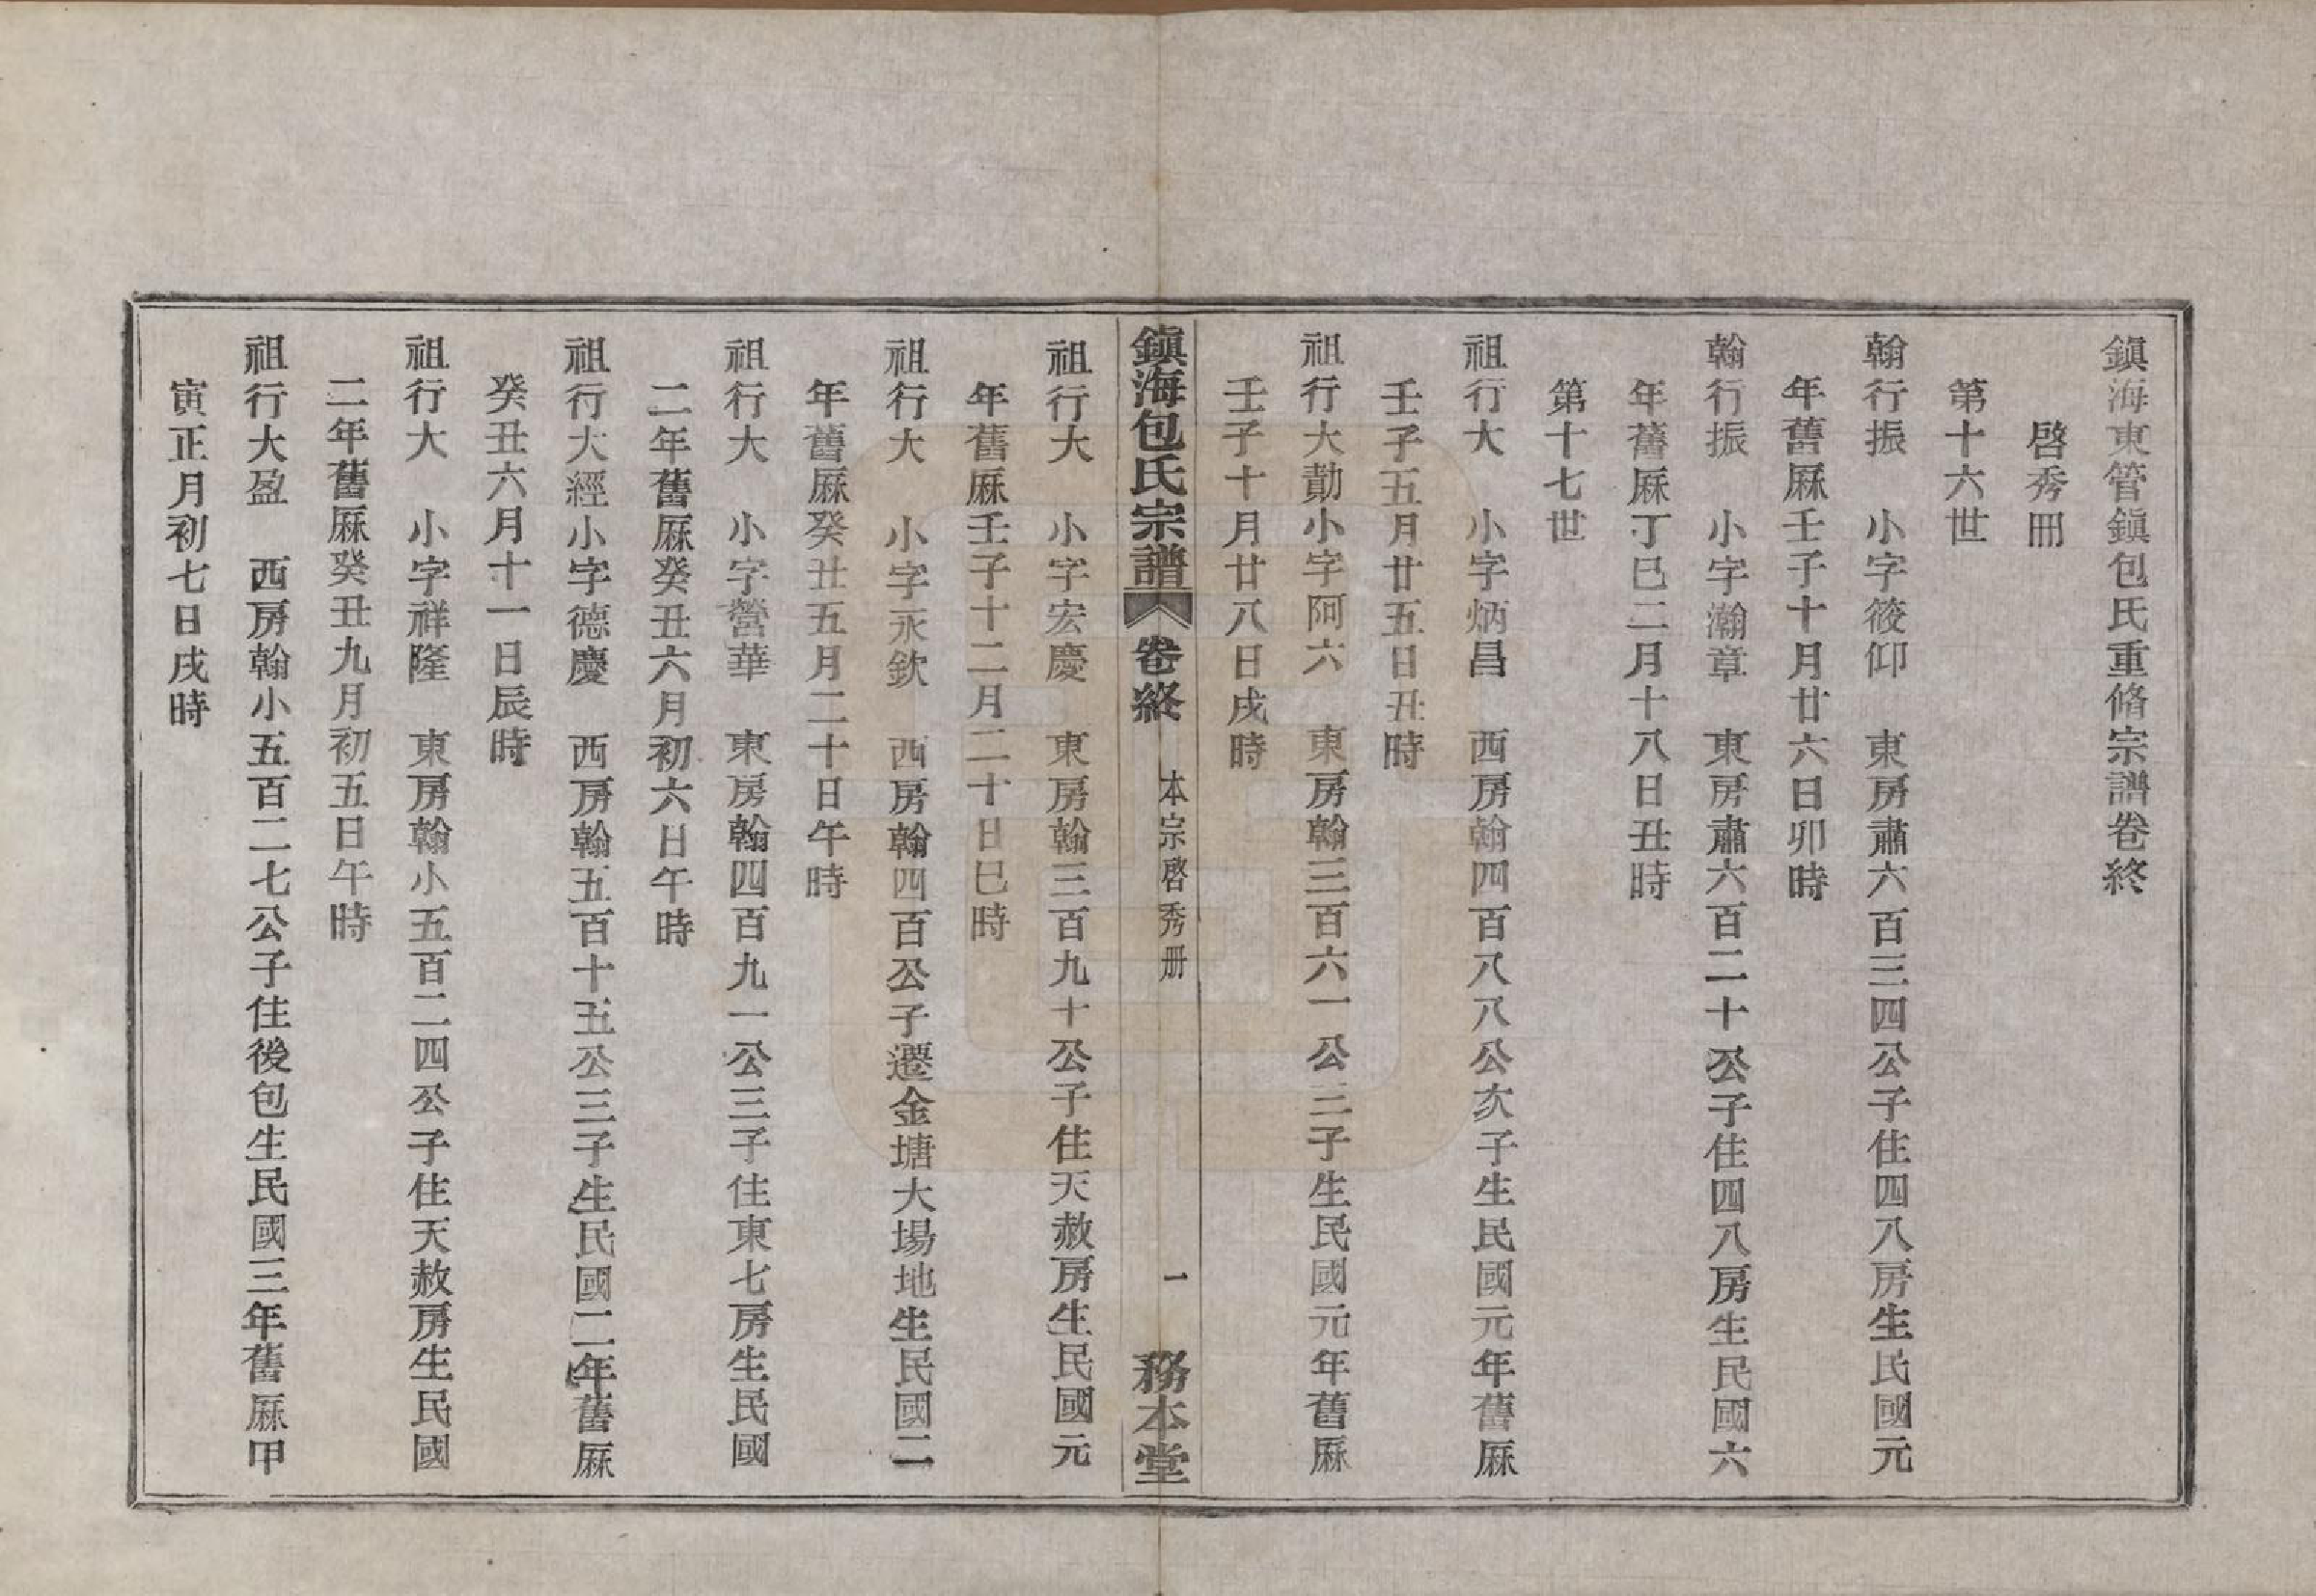 鎭海東管鎭包氏重脩宗譜卷終
啓秀冊
第十六世
翰行振　小字筱仰　東房肅六百三四公子住四八房生民國元
年舊厤壬子十月廿六日卯時
翰行振　小字瀚章　東房肅六百二十公子住四八房生民國六
年舊厤丁巳二月十八日丑時
第十七世
祖行大　小字炳昌　西房翰四百八八公次子生民國元年舊厤
壬子五月廿五日丑時
祖行大勛小字阿六　東房翰三百六一公三子生民國元年舊厤
壬子十月廿八日戌時
鎭海包氏宗譜　卷終　本宗啓秀冊　一　務本堂
祖行大　小字宏慶　東房翰三百九十公子住天赦房生民國元
年舊厤壬子十二月二十日巳時
祖行大　小字永欽　西房翰四百公子遷金塘大場地生民國二
年舊厤癸丑五月二十日午時
祖行大　小字營華　東房翰四百九一公三子住東七房生民國
二年舊厤癸丑六月初六日午時
祖行大經小字德慶　西房翰五百十五公三子生民國二年舊厤
癸丑六月十一日辰時
祖行大　小字祥隆　東房翰小五百二四公子住天赦房生民國
二年舊厤癸丑九月初五日午時
祖行大盈　西房翰小五百二七公子住後包生民國三年舊厤甲
寅正月初七日戌時